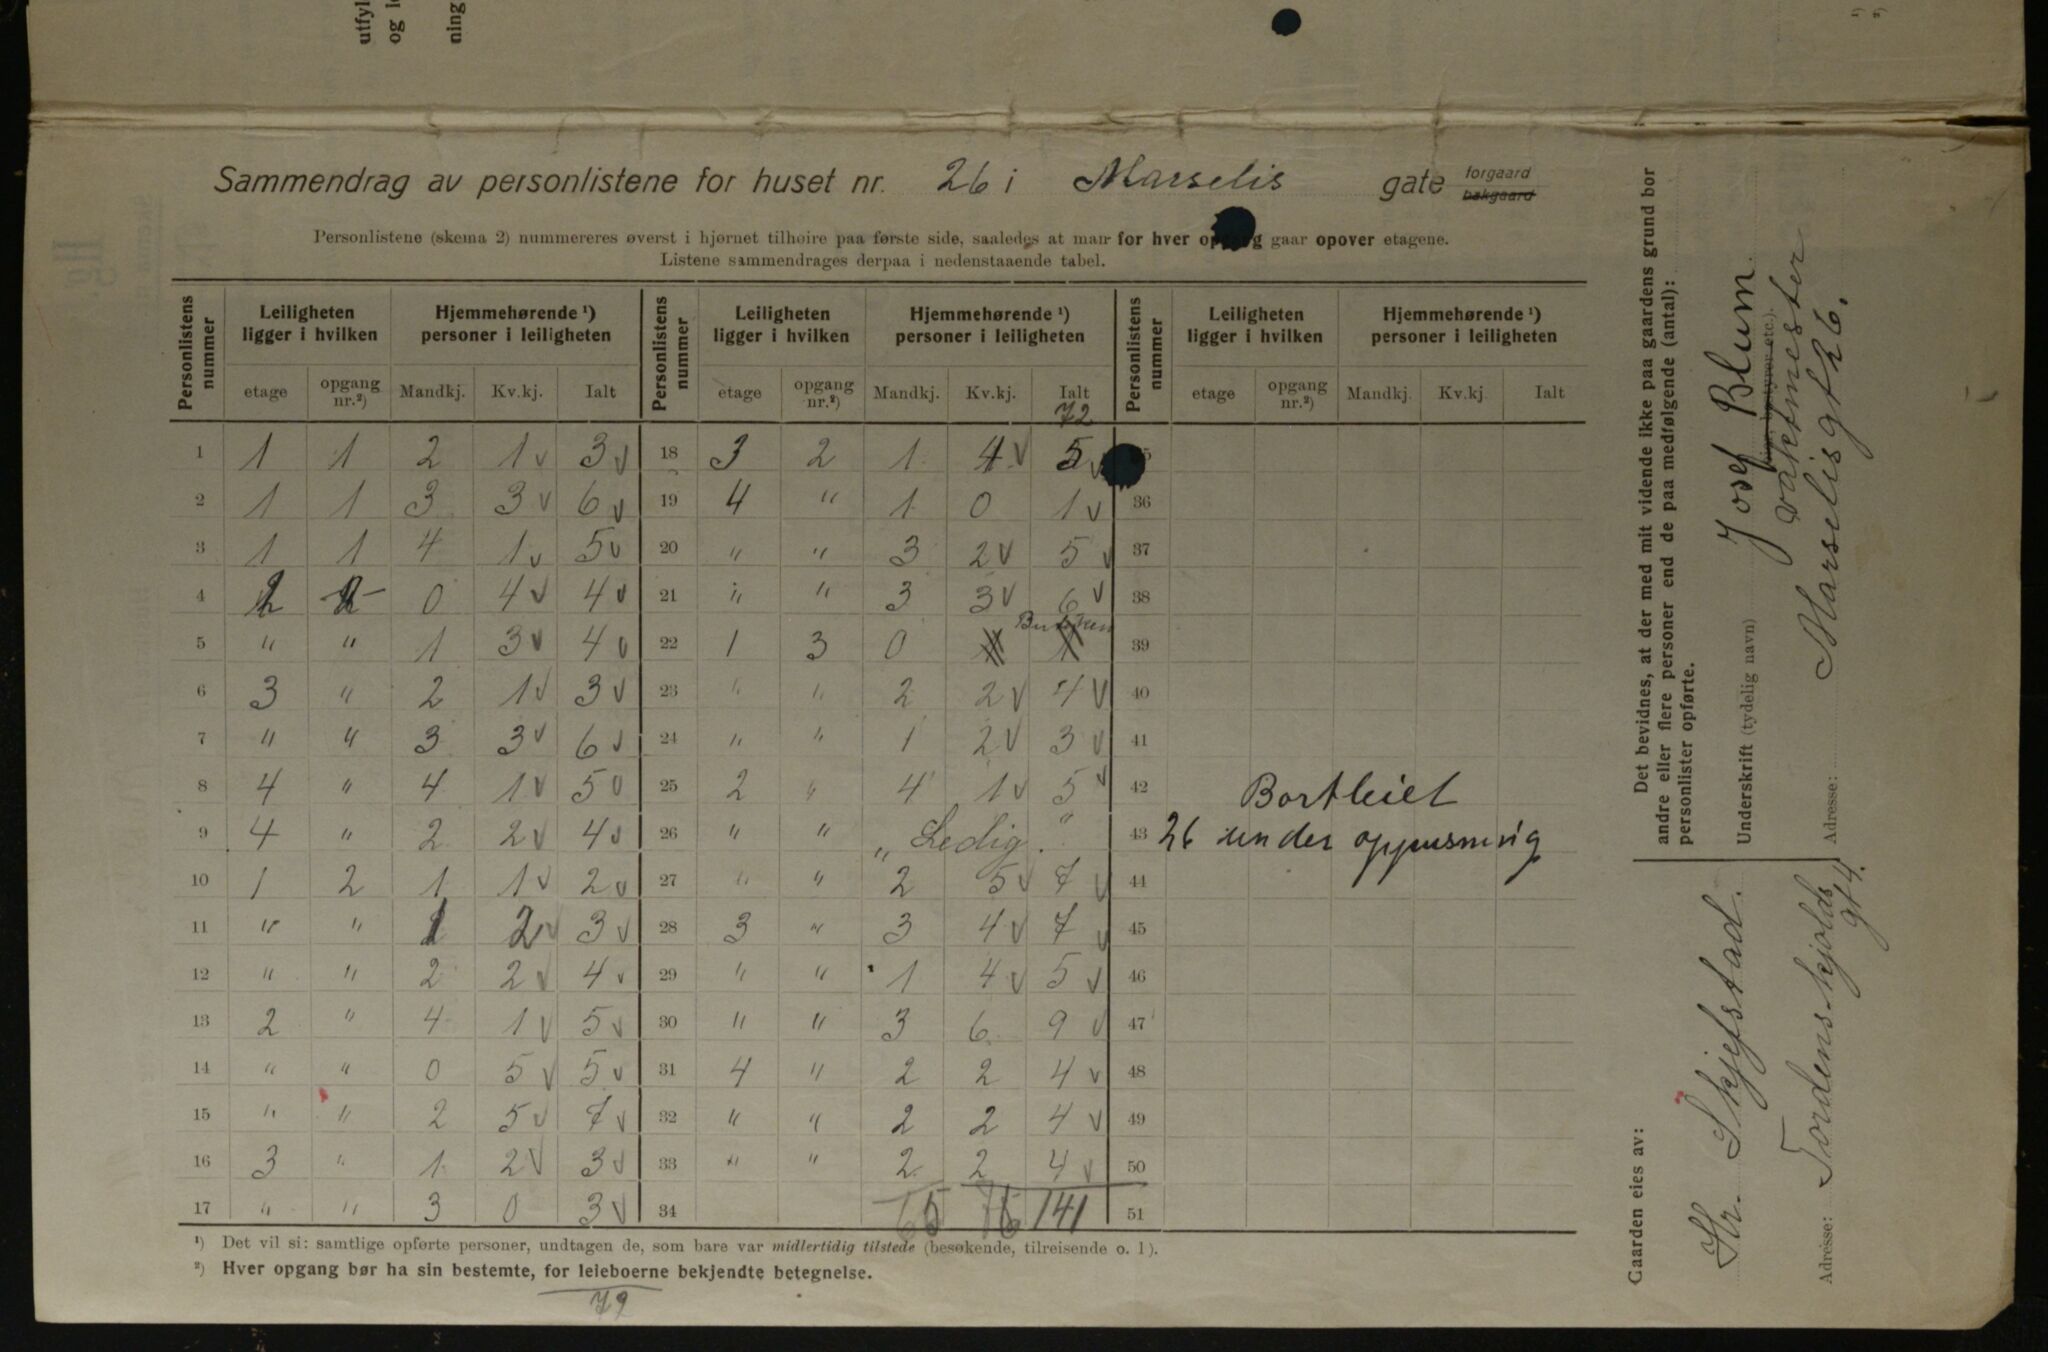 utfyl
og l
ning
¹)
²)
Sammendrag av personlistene for huset nr. 26 i Marselis gate forgaard bakgaard
Personlistene (skema 2) nummereres øverst i hjørnet tilhøire paa første side, saaledes at man for hver opgang gaar opover etagene.
Listene sammendrages derpaa i nedenstaaende tabel.
Personlistens nummer | Leiligheten ligger i hvilken | Hjemmehørende ¹) personer i leiligheten | Personlistens nummer | Leiligheten ligger i hvilken | Hjemmehørende ¹) personer i leiligheten | Personlistens nummer | Leiligheten ligger i hvilken | Hjemmehørende ¹) personer i leiligheten
etage | opgang nr.²) | Mandkj. | Kv.kj. | Ialt | etage | opgang nr.²) | Mandkj. | Kv.kj. | Ialt | etage | opgang nr.²) | Mandkj. | Kv.kj. | Ialt
72
1 | 1 | 1 | 2 | 1 v | 3 v | 18 | 3 | 2 | 1 | 4 v | 5 v | 35
2 | 1 | 1 | 3 | 3 v | 6 v | 19 | 4 | " | 1 | 0 | 1 v | 36
3 | 1 | 1 | 4 | 1 v | 5 v | 20 | " | " | 3 | 2 v | 5 v | 37
4 | 2 | | 0 | 4 v | 4 v | 21 | " | " | 3 | 3 v | 6 v | 38
5 | " | " | 1 | 3 v | 4 v | 22 | 1 | 3 | 0 | | | 39
6 | 3 | " | 2 | 1 v | 3 v | 23 | " | " | 2 | 2 v | 4 v | 40
7 | " | " | 3 | 3 v | 6 v | 24 | " | " | 1 | 2 v | 3 v | 41
8 | 4 | " | 4 | 1 v | 5 v | 25 | 2 | " | 4 | 1 v | 5 v | 42 | Bortleiet
9 | 4 | " | 2 | 2 v | 4 v | 26 | " | " | " Ledig. " | 43 | 26 under oppusning
10 | 1 | 2 | 1 | 1 v | 2 v | 27 | " | " | 2 | 5 v | 7 v | 44
11 | " | " | 1 | 2 v | 3 v | 28 | 3 | " | 3 | 4 v | 7 v | 45
12 | " | " | 2 | 2 v | 4 v | 29 | " | " | 1 | 4 v | 5 v | 46
13 | 2 | " | 4 | 1 v | 5 v | 30 | " | " | 3 | 6 | 9 v | 47
14 | " | " | 0 | 5 v | 5 v | 31 | 4 | " | 2 | 2 | 4 v | 48
15 | " | " | 2 | 5 v | 7 v | 32 | " | " | 2 | 2 | 4 v | 49
16 | 3 | " | 1 | 2 v | 3 v | 33 | " | " | 2 | 2 | 4 v | 50
17 | " | " | 3 | 0 | 3 v | 34 | | | 65 | 76 | 141 | 51
¹) Det vil si: samtlige opførte personer, undtagen de, som bare var midlertidig tilstede (besøkende, tilreisende o. l).
²) Hver opgang bør ha sin bestemte, for leieboerne bekjendte betegnelse.
72
Det bevidnes, at der med mit vidende ikke paa gaardens grund bor
andre eller flere personer end de paa medfølgende (antal):
personlister opførte.
Underskrift (tydelig navn) Josef Blum
vaktmester
Adresse: Marselisgt 26.
Gaarden eies av:
Hr. Skjefstad.
Adresse: Tordenskjolds
gt 4.